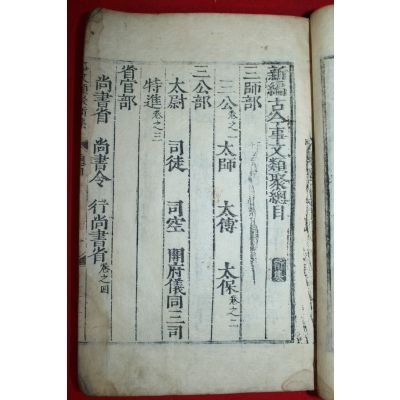 新編古今事文類聚總目
三師部
三公卷之一 太師 太傅 太保卷之二
三公部
太尉 司徒 司空 開府儀同三司
特進卷之三
省官部
尚書省 尚書令 行尚書省卷之四